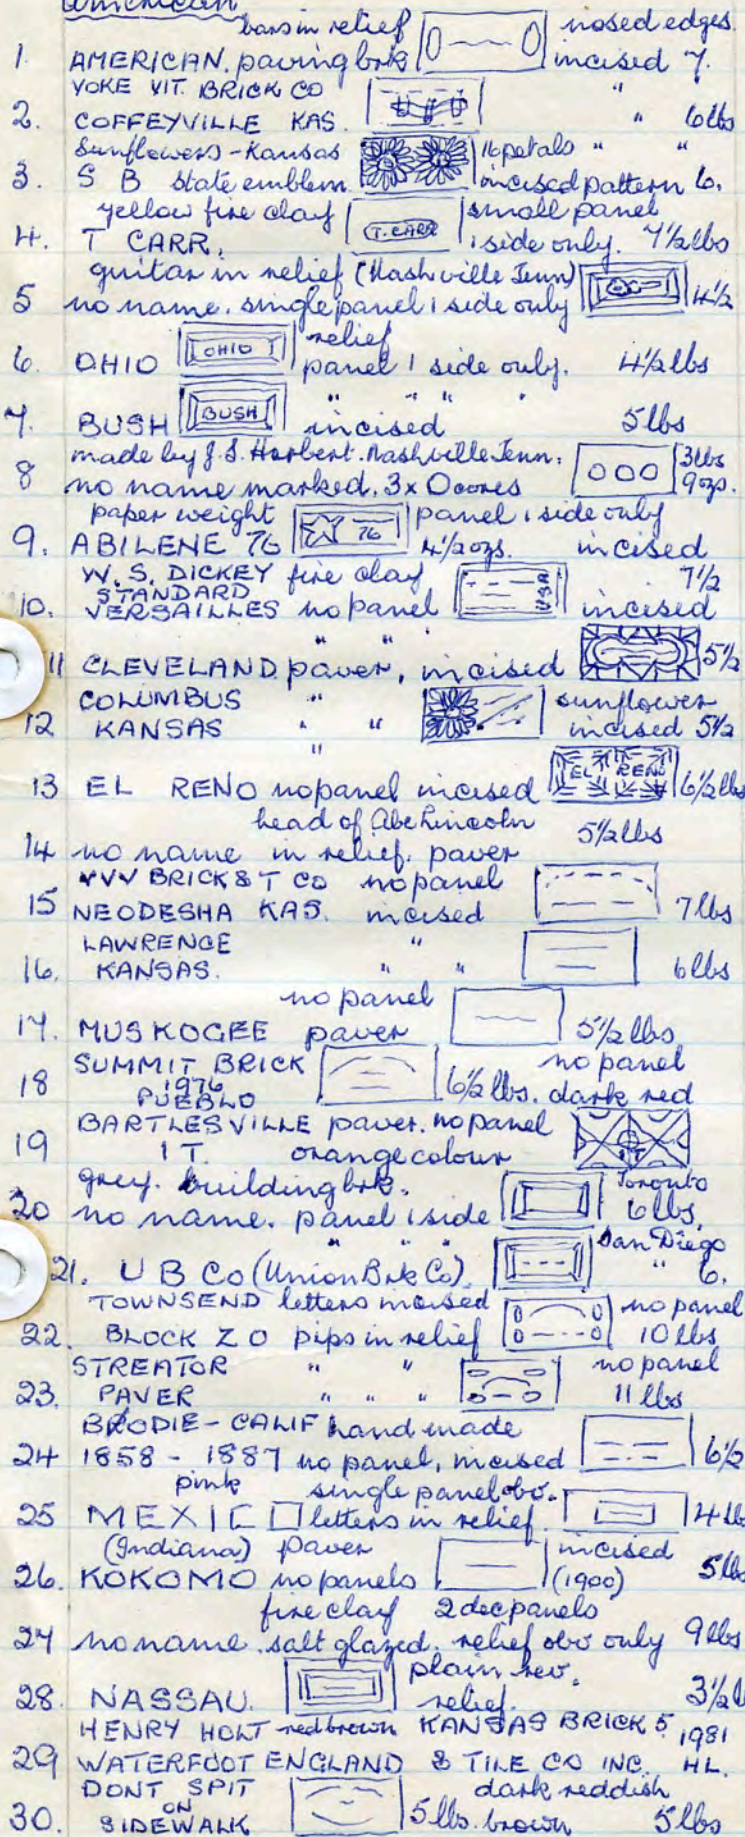 american
bars in relief nosed edges.
1. AMERICAN. paving brk incised 7.
YOKE VIT. BRICK CO "
2. COFFEYVILLE KAS. " 6lbs
Sunflowers - Kansas 16 petals " "
3. S B State emblem incised pattern 6.
yellow fire clay T. CARR small panel
4. T CARR. 1 side only. 7 1/2 lbs
guitar in relief (Nashville Tenn)
5 no name. single panel 1 side only 4 1/2
relief
6. OHIO OHIO panel 1 side only. 4 1/2 lbs
" " " "
7. BUSH BUSH incised 5lbs
made by J. S. Harbert. Nashville Tenn. 3lbs
8 no name marked. 3 x O cores 9ozs.
paper weight panel 1 side only
9. ABILENE 76 76 4 1/2 ozs. incised
W. S. DICKEY fire clay 7 1/2
STANDARD
10. VERSAILLES no panel USA incised
" "
11 CLEVELAND paver, incised 5 1/2
COLUMBUS " sunflower
12 KANSAS " " incised 5 1/2
"
13 EL RENO no panel incised EL RENO 6 1/2 lbs
head of Abe Lincoln 5 1/2 lbs
14 no name in relief. paver
VVV BRICK & T CO no panel
15 NEODESHA KAS. incised 7 lbs
LAWRENCE "
16. KANSAS. " " 6 lbs
no panel
17. MUSKOGEE paver 5 1/2 lbs
SUMMIT BRICK no panel
1976
18 PUEBLO 6 1/2 lbs. dark red
BARTLESVILLE paver. no panel
19 I T. orange colour IT
grey. building brk. Toronto
20 no name. panel 1 side 6 lbs.
" " " San Diego
21. U B Co (Union Brk Co) " 6.
TOWNSEND letters incised no panel
22. BLOCK Z O pips in relief 10 lbs
STREATOR " " no panel
23. PAVER " " " 11 lbs
BRODIE - CALIF hand made
24 1858 - 1887 no panel, incised 6 1/2
pink single panel obv.
25 MEXICO letters in relief. 4 lbs
(Indiana) paver incised
26. KOKOMO no panels (1900) 5 lbs
fire clay 2 dec panels
27 no name. salt glazed. relief obv only 9 lbs
plain rev.
28. NASSAU. relief. 3 1/2 l
HENRY HOLT red brown KANSAS BRICK 5 1981
29 WATERFOOT ENGLAND & TILE CO INC. HL.
DONT SPIT dark reddish
ON
30. SIDEWALK 5 lbs. brown 5 lbs